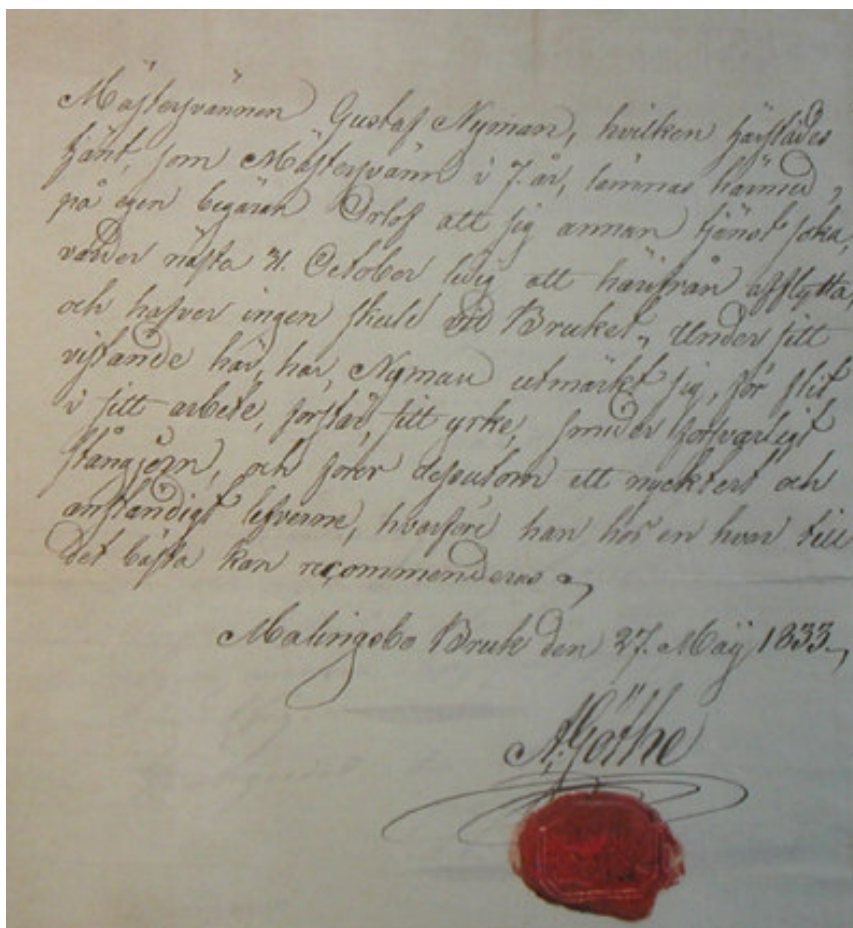 Mästersvännen Gustaf Nyman, hvilken härstädes
tjänt, som Mästersvänn i 7. år, lämnas härmed,
på egen begäran Orlof att sig annan tjenst söka,
varder nästa 31. October ledig att härifrån afflytta,
och hafver ingen skuld vid Bruket, Under sitt
vistande här, har, Nyman utmärket sig, för flit
i sitt arbete, förstår, sitt yrke, smider försvarligt
stångjern, och förer dessutom ett nycktert och
anständigt lefverne, hvarföre han hos en hvar till
det bästa kan recommenderas
Malingsbo Bruk den 27. Maÿ 1833.
A. Göthe